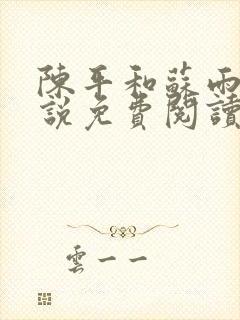 陳平和蘇雨
說免費閱讀
雲一一